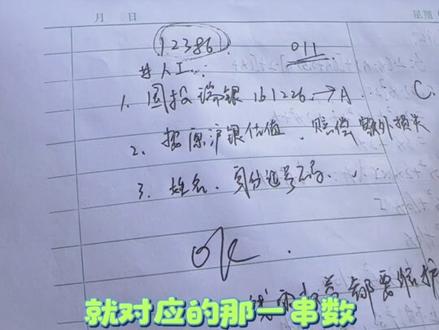 月 日 星期
12386 011
转人工
1. 国投瑞银 161226 → A C.
2. 按原沪银估值 赔偿额外损失
3. 姓名、身份证号码.
OK.
都要维护
就对应的那一串数